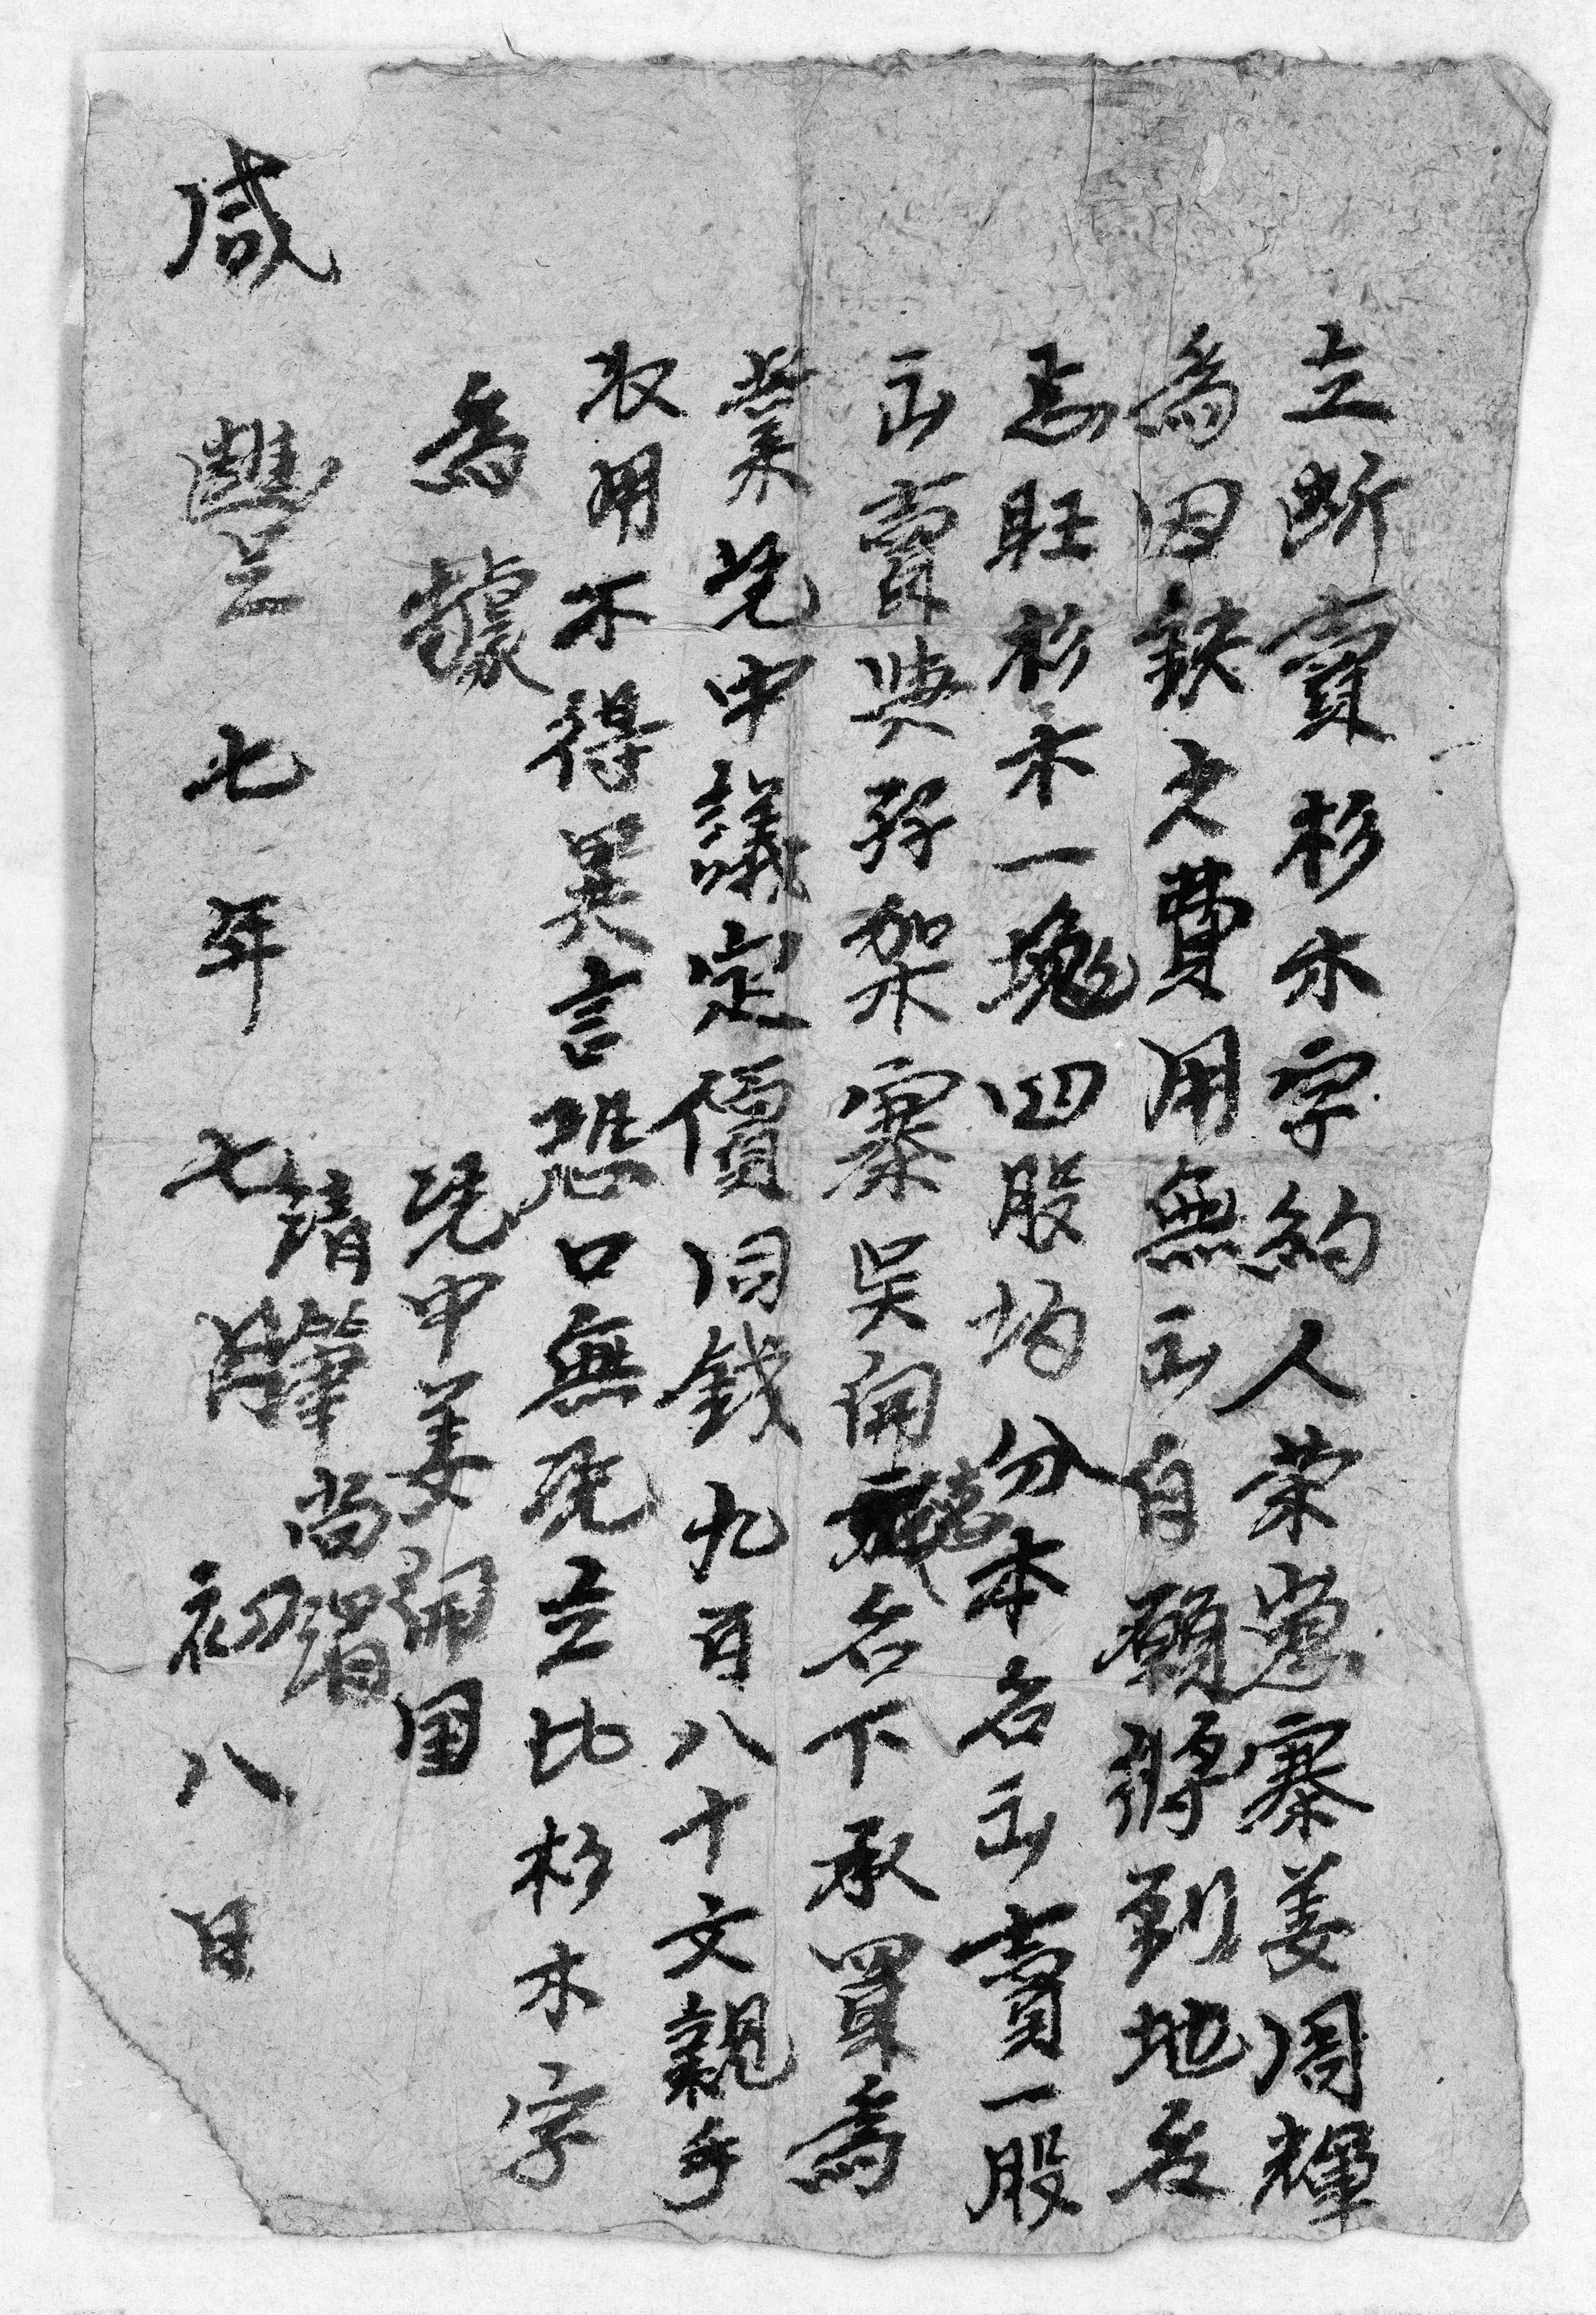 立断賣杉木字約人荣嵬寨姜周輝
為因缺少費用無出自願將到地名
忘旺杉木一塊四股均分本名出賣一股
出賣與孖架寨吳開德名下承買為
業凭中議定價同錢九百八十文親手
收用不得異言恐口無凭立比杉木字
為據
凭中姜開国
請筆尚渭
咸豐七年七月初八日